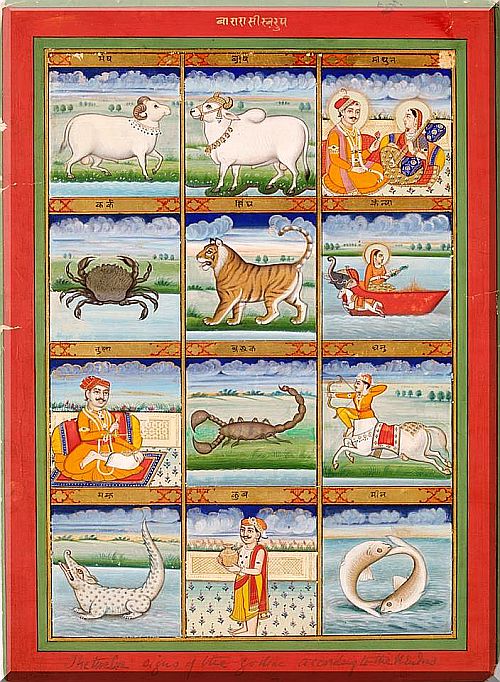 बारारासीस्वरुप
मेष
मीथुन
कर्क
सिंघ
कन्या
तुला
धनु
मक्र
कुंब
मीन
The twelve signs of the Zodiac according to the Hindus